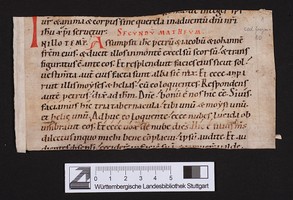 ur& anima & corpus sine querela in aduentu dni nri
ihu xpi seruetur. SECUNDU MATHEUM.
IN ILLO TEMP. Assumpsit ihc petru & iacobu & iohanne
frem eius. & duxit illos in monte excelsu seorsu. & trans
figurat e ante eos. Et resplenduit facies eius sicut sol.
uestimta aut eius facta sunt alba sic nix. Et ecce appa
ruit illis moyses & helias. cu eo loquentes. Respondens
aut petrus. dix ad ihm. Dne. bonu e nos hic ee. Si uis
faciamus hic tria tabernacula. tibi unu. & moysi unu.
& helie unu. Adhuc eo loquente. ecce nubes lucida ob
umbrauit eos. Et ecce uox de nube dicens. Hic e filius ms
dilectus in quo michi bene complacui. ipsu audite. Et au
Württembergische Landesbibliothek Stuttgart